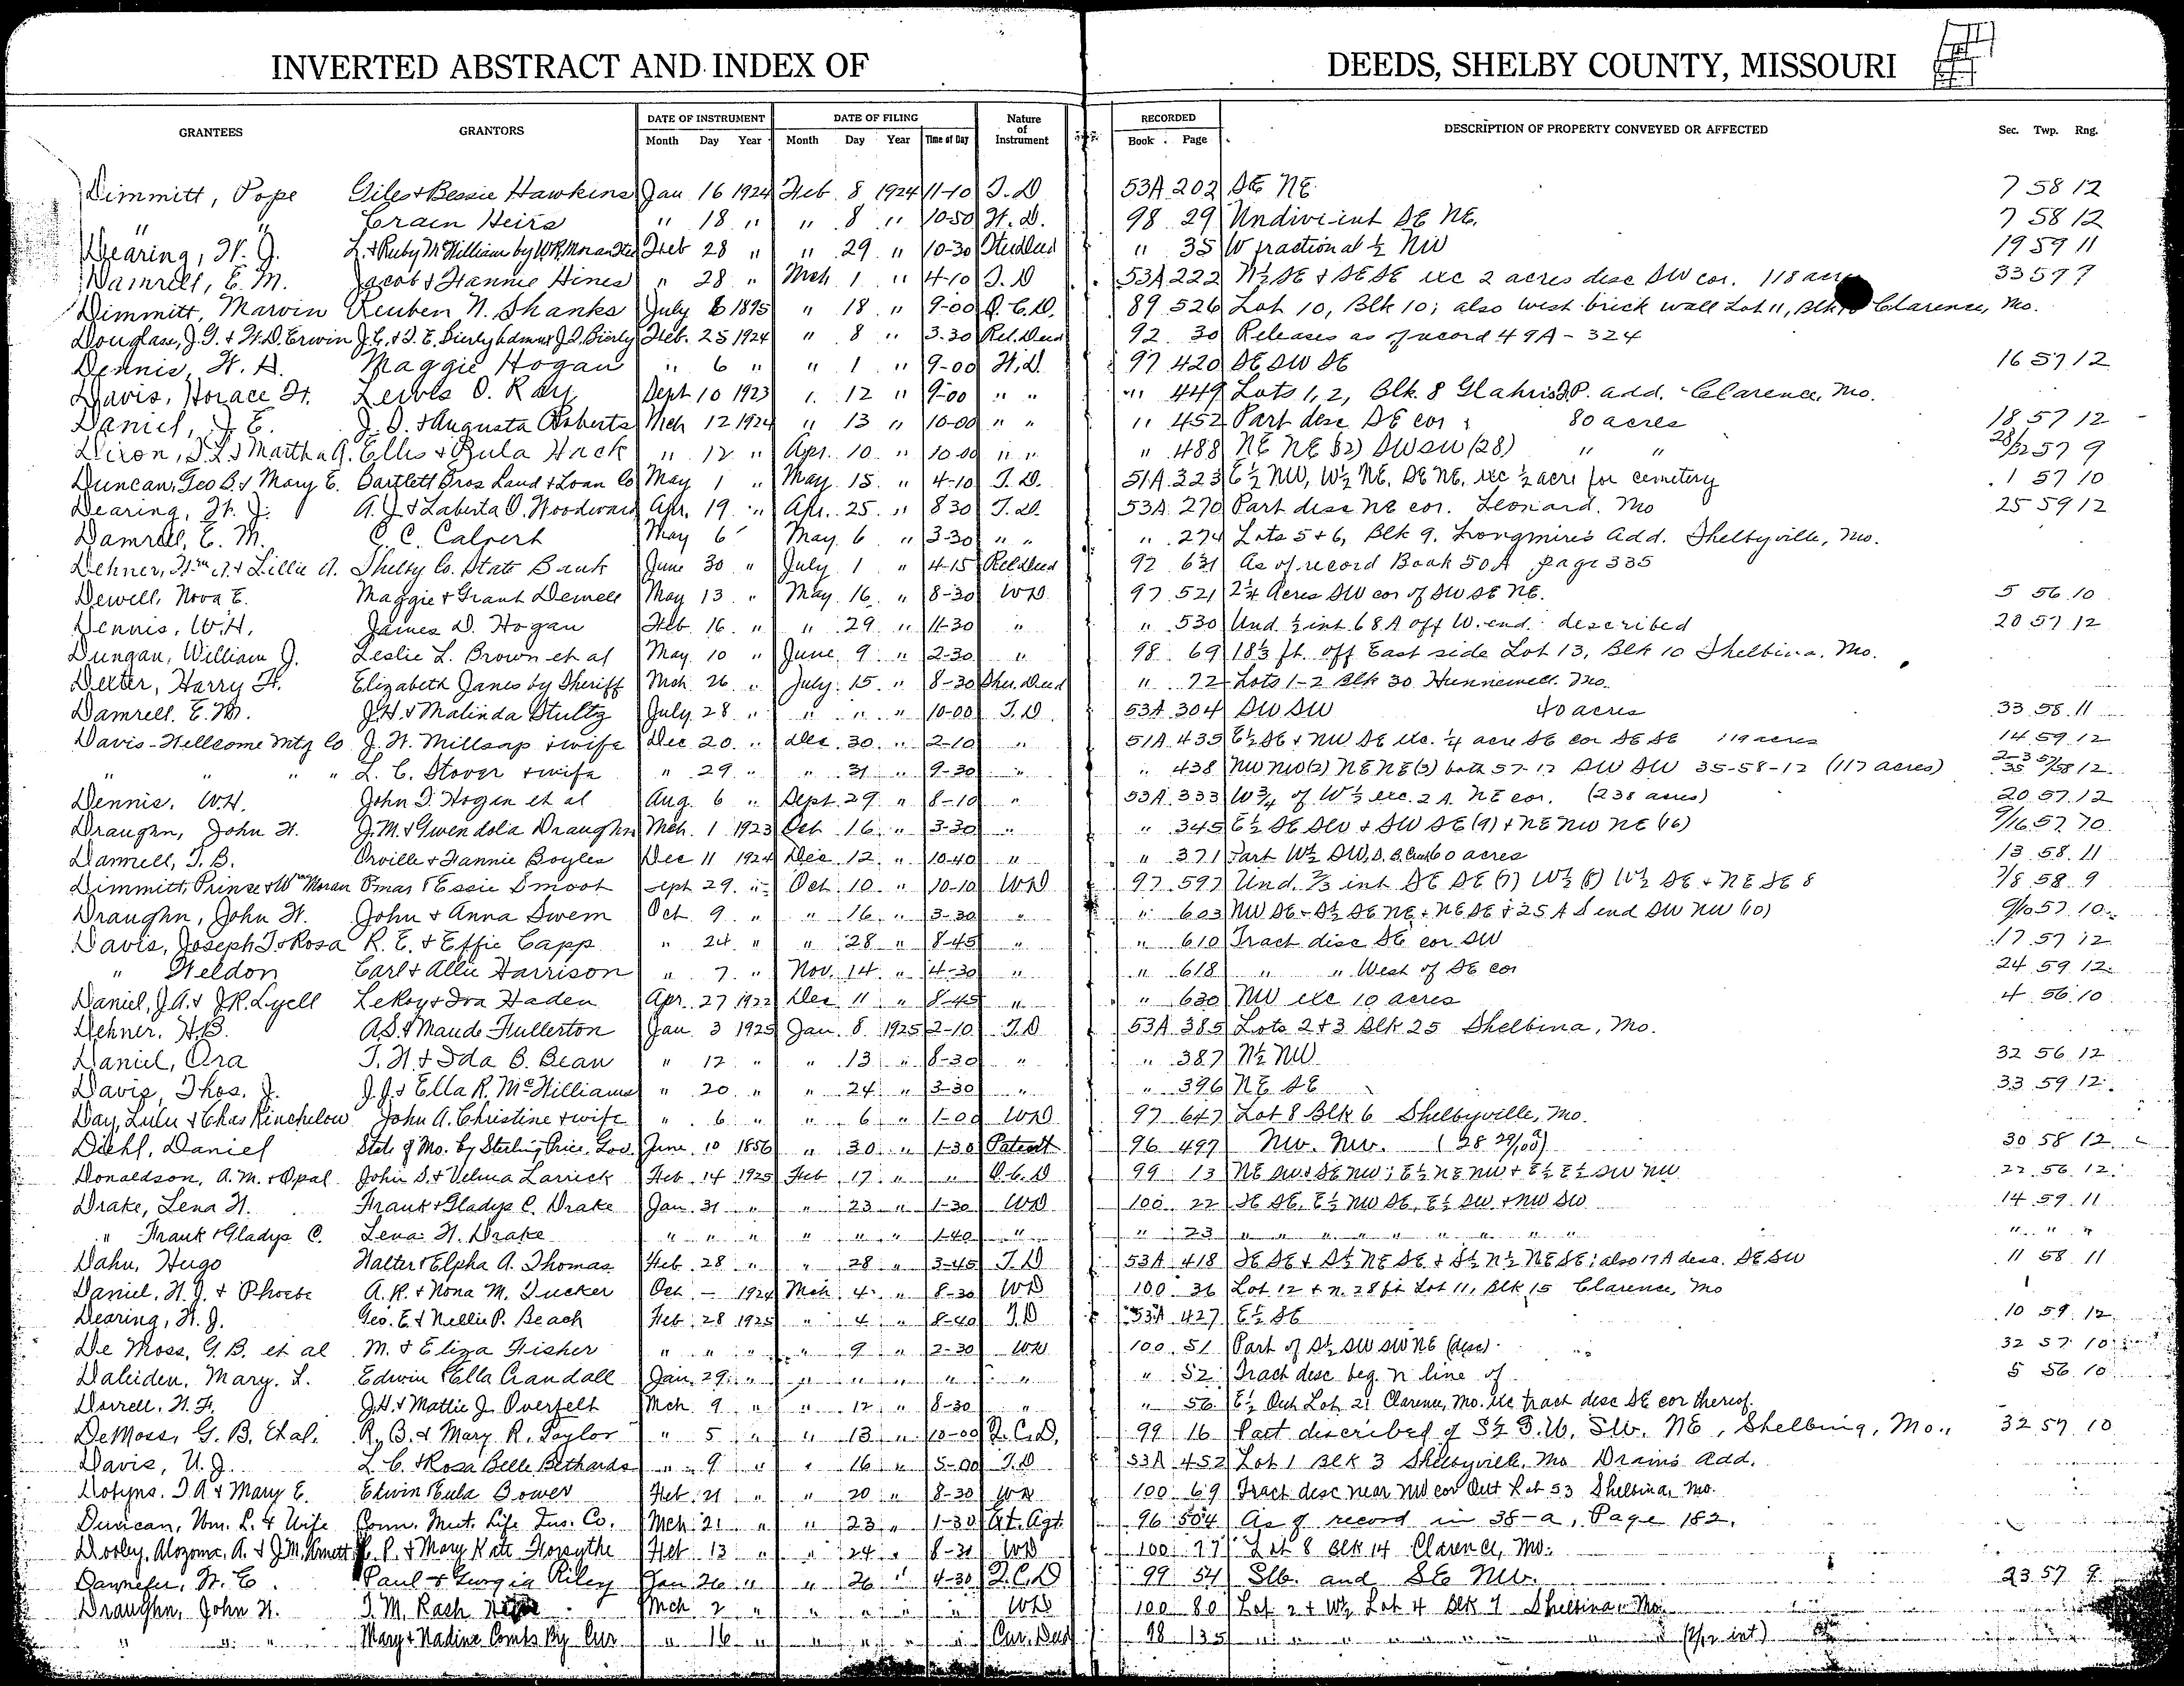 INVERTED ABSTRACT AND INDEX OF DEEDS, SHELBY COUNTY, MISSOURI
GRANTEES GRANTORS DATE OF INSTRUMENT DATE OF FILING Nature of Instrument RECORDED DESCRIPTION OF PROPERTY CONVEYED OR AFFECTED Sec. Twp. Rng.
Month Day Year Month Day Year Time of Day Book Page
Dimmitt, Pope Giles & Bessie Hawkins Jan 16 1924 Feb 8 1924 11-10 T.D 53A 202 SE NE 7 58 12
" " Crain Heirs " 18 " " 8 " 10-50 W.D. 98 29 Undivi-int SE NE. 7 58 12
Dearing, W. J. L. & Ruby McWilliam by W.R. Moran Feb 28 " " 29 " 10-30 " 35 W fractional ½ NW 19 59 11
Damrell, E. M. Jacob & Fannie Hines " 28 " Mch 1 " 4-10 T.D 53A 222 N½ SE & SE SE exc 2 acres desc SW cor. 118 acres 33 57 9
Dimmitt, Marvin Reuben N. Shanks July 6 1895 " 18 " 9-00 Q.C.D. 89 526 Lot 10, Blk 10; also west brick wall Lot 11, Blk 10 Clarence, Mo.
Douglass, J. G. & W.D. Erwin J.C. & T.E. Bierly Admrs J.D. Bierly Feb. 25 1924 " 8 " 3-30 Rel. Deed 92 30 Releases as of record 49A-324
Dennis, W. H. Maggie Hogan " 6 " " 1 " 9-00 W.D. 97 420 SE SW SE 16 57 12
Davis, Horace W. Lewis O. Ray Sept 10 1923 " 12 " 9-00 " " " 449 Lots 1, 2, Blk. 8 add. Clarence, Mo.
Daniel, J. E. J. D. & Augusta Roberts Mch 12 1924 " 13 " 10-00 " " " 452 Part desc SE cor 80 acres 18 57 12
Dixon, & Martha A. Ellis & Eula Hack " 12 " Apr. 10 " 10-00 " " " 488 NE NE (32) SW SW (28) " " 28/32 57 9
Duncan, Geo B. & Mary E. Bartlett Bros Land & Loan Co May 1 " May. 15 " 4-10 T.D. 51A 323 E½ NW, W½ NE, SE NE, exc ½ acre for cemetery 1 57 10
Dearing, W. J. A. J. & Laberta O. Woodward Apr. 19 " Apr. 25 " 8 30 T.D. 53A 270 Part desc NE cor. Leonard, Mo 25 59 12
Damrell, E. M. C. C. Calvert May 6 May. 6 " 3-30 " " " 274 Lots 5 & 6, Blk 9. Longmire's Add. Shelbyville, Mo.
Dehner, Wm A. & Lillie A. Shelby Co. State Bank June 30 " July 1 " 4-15 Rel Deed 92 631 As of record Book 50A page 335
Dewell, Nova E. Maggie & Grant Dewell May 13 " May. 16 " 8-30 WD 97 521 2¼ Acres SW cor of SW SE NE. 5 56 10
Dennis, W.H. James D. Hogan Feb 16 " " 29 " 11-30 " " 530 Und ½ int 68 A off W. end described 20 57 12
Dungan, William J. Leslie L. Brown et al May 10 " June 9 " 2-30 " 98 69 18⅓ ft. off East side Lot 13, Blk 10 Shelbina, Mo.
Dexter, Harry H. Elizabeth Janes by Sheriff Mch 26 " July 15 " 8-30 Sher. Deed " 72 Lots 1-2 Blk 30 Hunnewell Mo.
Damrell, E. M. J.H. & Malinda Stultz July 28 " " " " 10-00 T.D 53A 304 SW SW 40 acres 33 58 11
Davis-Wellcome Mtg Co J. W. Millsap & wife Dec 20 " Dec. 30 " 2-10 " 51A 435 E½ SE & NW SE exc. ¼ acre SE cor SE SE 119 acres 14 59 12
" " " " L. C. Stover & wife " 29 " " 31 " 9-30 " " 438 NW NW (2) NE NE (3) both 57-12 SW SW 35-58-12 (117 acres) 2-3 57/ 35 /58 12
Dennis, W.H. John T. Hogan et al Aug. 6 " Sept 29 " 8-10 " 53A 333 W¾ of W½ exc. 2 A. NE cor. (238 acres) 20 57 12
Draughn, John W. J.M. & Gwendola Draughn Mch. 1 1923 Oct 16 " 3-30 " " 345 E½ SE SW & SW SE (9) & NE NW NE (16) 9/16 57 10
Damrell, T.B. Orville & Fannie Boyles Dec 11 1924 Dec. 12 " 10-40 " " 371 Part W½ SW, 60 acres 13 58 11
Dimmitt, Prince & Wm Moran Omar & Essie Smoot Sept 29 " Oct 10 " 10-10 WD 97 597 Und. ⅔ int SE SE (7) W½ (8) W½ SE & NE SE 8 7/8 58 9
Draughn, John W. John & Anna Swem Oct 9 " " 16 " 3-30 " " 603 NW SE - S½ SE NE & NE SE & 25 A S end SW NW (10) 9/10 57 10
Davis, Joseph T. & Rosa R. E. & Effie Capp " 24 " " 28 " 8-45 " " 610 Tract desc SE cor SW 17 57 12
" Weldon Carl & Allie Harrison " 7 " Nov. 14 " 4-30 " " 618 " " West of SE cor 24 59 12
Daniel, J.A. & J.R. Lyell LeRoy & Iva Haden Apr. 27 1922 Dec 11 " 8-45 " " 630 NW exc 10 acres 4 56 10
Dehner, H.B. A.S. & Maude Fullerton Jan 3 1925 Jan. 8 1925 2-10 T.D 53A 385 Lots 2 & 3 Blk 25 Shelbina, Mo.
Daniel, Ora T. N. & Ida B. Bean " 12 " " 13 " 8-30 " " 387 N½ NW 32 56 12
Davis, Thos. J. J. J. & Ella R. McWilliams " 20 " " 24 " 3-30 " " 396 NE SE 33 59 12
Day, Lulu & Chas Kinchelow John A. Christine & wife " 6 " " 6 " 1-00 WD 97 647 Lot 8 Blk 6 Shelbyville, Mo.
Diehl, Daniel State of Mo. by Sterling Price, Gov. June 10 1856 " 30 " 1-30 Patent 96 497 NW. NW. (28 29/100) 30 58 12
Donaldson, A. M. & Opal John S. & Velma Larrick Feb 14 1925 Feb 17 " " Q.C.D 99 13 NE SW & SE NW; E½ NE NW & E½ E½ SW NW 22 56 12
Drake, Lena H. Frank & Gladys C. Drake Jan. 31 " " 23 " 1-30 WD 100 22 SE SE, E½ NW SE, E½ SW & NW SW 14 59 11
" Frank & Gladys C. Lena H. Drake " " " " " " 1-40 " " 23 " " " " " " " " " "
Dahn, Hugo Walter & Elpha A. Thomas Feb. 28 " " 28 " 3-45 T.D 53A 418 SE SE & S½ NE SE & S½ N½ NE SE; also 17 A desc. SE SW 11 58 11
Daniel, H. J. & Phoebe A. R. & Nona M. Tucker Oct - 1924 Mch 4 " 8-30 WD 100 36 Lot 12 & N. 28 ft Lot 11, Blk 15 Clarence, Mo
Dearing, W. J. Geo. E. & Nellie P. Beach Feb 28 1925 " 4 " 8-40 T.D 53A 427 E½ SE 10 59 12
De Moss, G. B. et al M. & Eliza Fisher " " " " 9 " 2-30 WD 100 51 Part of S½ SW SW NE (desc) 32 57 10
Daleiden, Mary L. Edwin & Ella Crandall Jan. 29 " " " " " " " 52 Tract desc beg. N line of 5 56 10
Dorrell, W. F. J.H. & Mattie J. Overfelt Mch 9 " " 12 " 8-30 " " 56 E½ Out Lot 21 Clarence, Mo. exc tract desc SE cor thereof.
DeMoss, G. B. Et al. R. B. & Mary R. Taylor " 5 " " 13 " 10-00 Q.C.D. 99 16 Part described of S½ S.W. SW. NE, Shelbina, Mo., 32 57 10
Davis, U. J. L. C. & Rosa Belle Bethards " 9 " " 16 " 5-00 T.D 53A 452 Lot 1 Blk 3 Shelbyville, Mo Drains Add.
Dobyns, T A & Mary E. Edwin & Eula Bower Feb. 21 " " 20 " 8-30 WD 100 69 Tract desc near NW cor Out Lot 53 Shelbina, Mo.
Duncan, Wm. L. & Wife Conn. Mut. Life Ins. Co. Mch 21 " " 23 " 1-30 96 504 As of record in 38-a, Page 182.
Dooley, Alozoma, A. & J.M. Arnett P. & Mary Kate Forsythe Feb 13 " " 24 " 8-30 WD 100 77 Lot 8 Blk 14 Clarence, Mo.
Dannefer, W. E. Paul & Georgia Riley Jan 26 " " 26 " 4-30 Q.C.D 99 54 and SE NW. 23 57 9
Draughn, John W. T. M. Rash Mch 2 " " " " " WD 100 80 Lot 2 & W½ Lot 4 Blk 7 Shelbina, Mo.
" " " Mary & Nadine Combs By Cur " 16 " " " " " Cur. Deed 98 135 " " " " " " " (2/12 int)